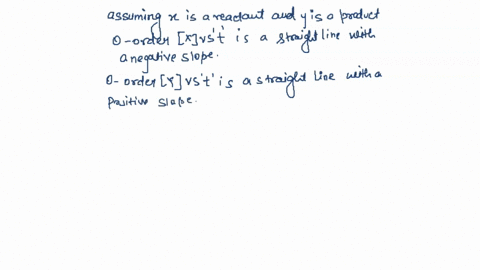 assuming x is a reactant and y is a product
0-order [x] vs 't' is a straight line with
a negative slope.
0-order [Y] vs 't' is a straight line with a
Positive slope.